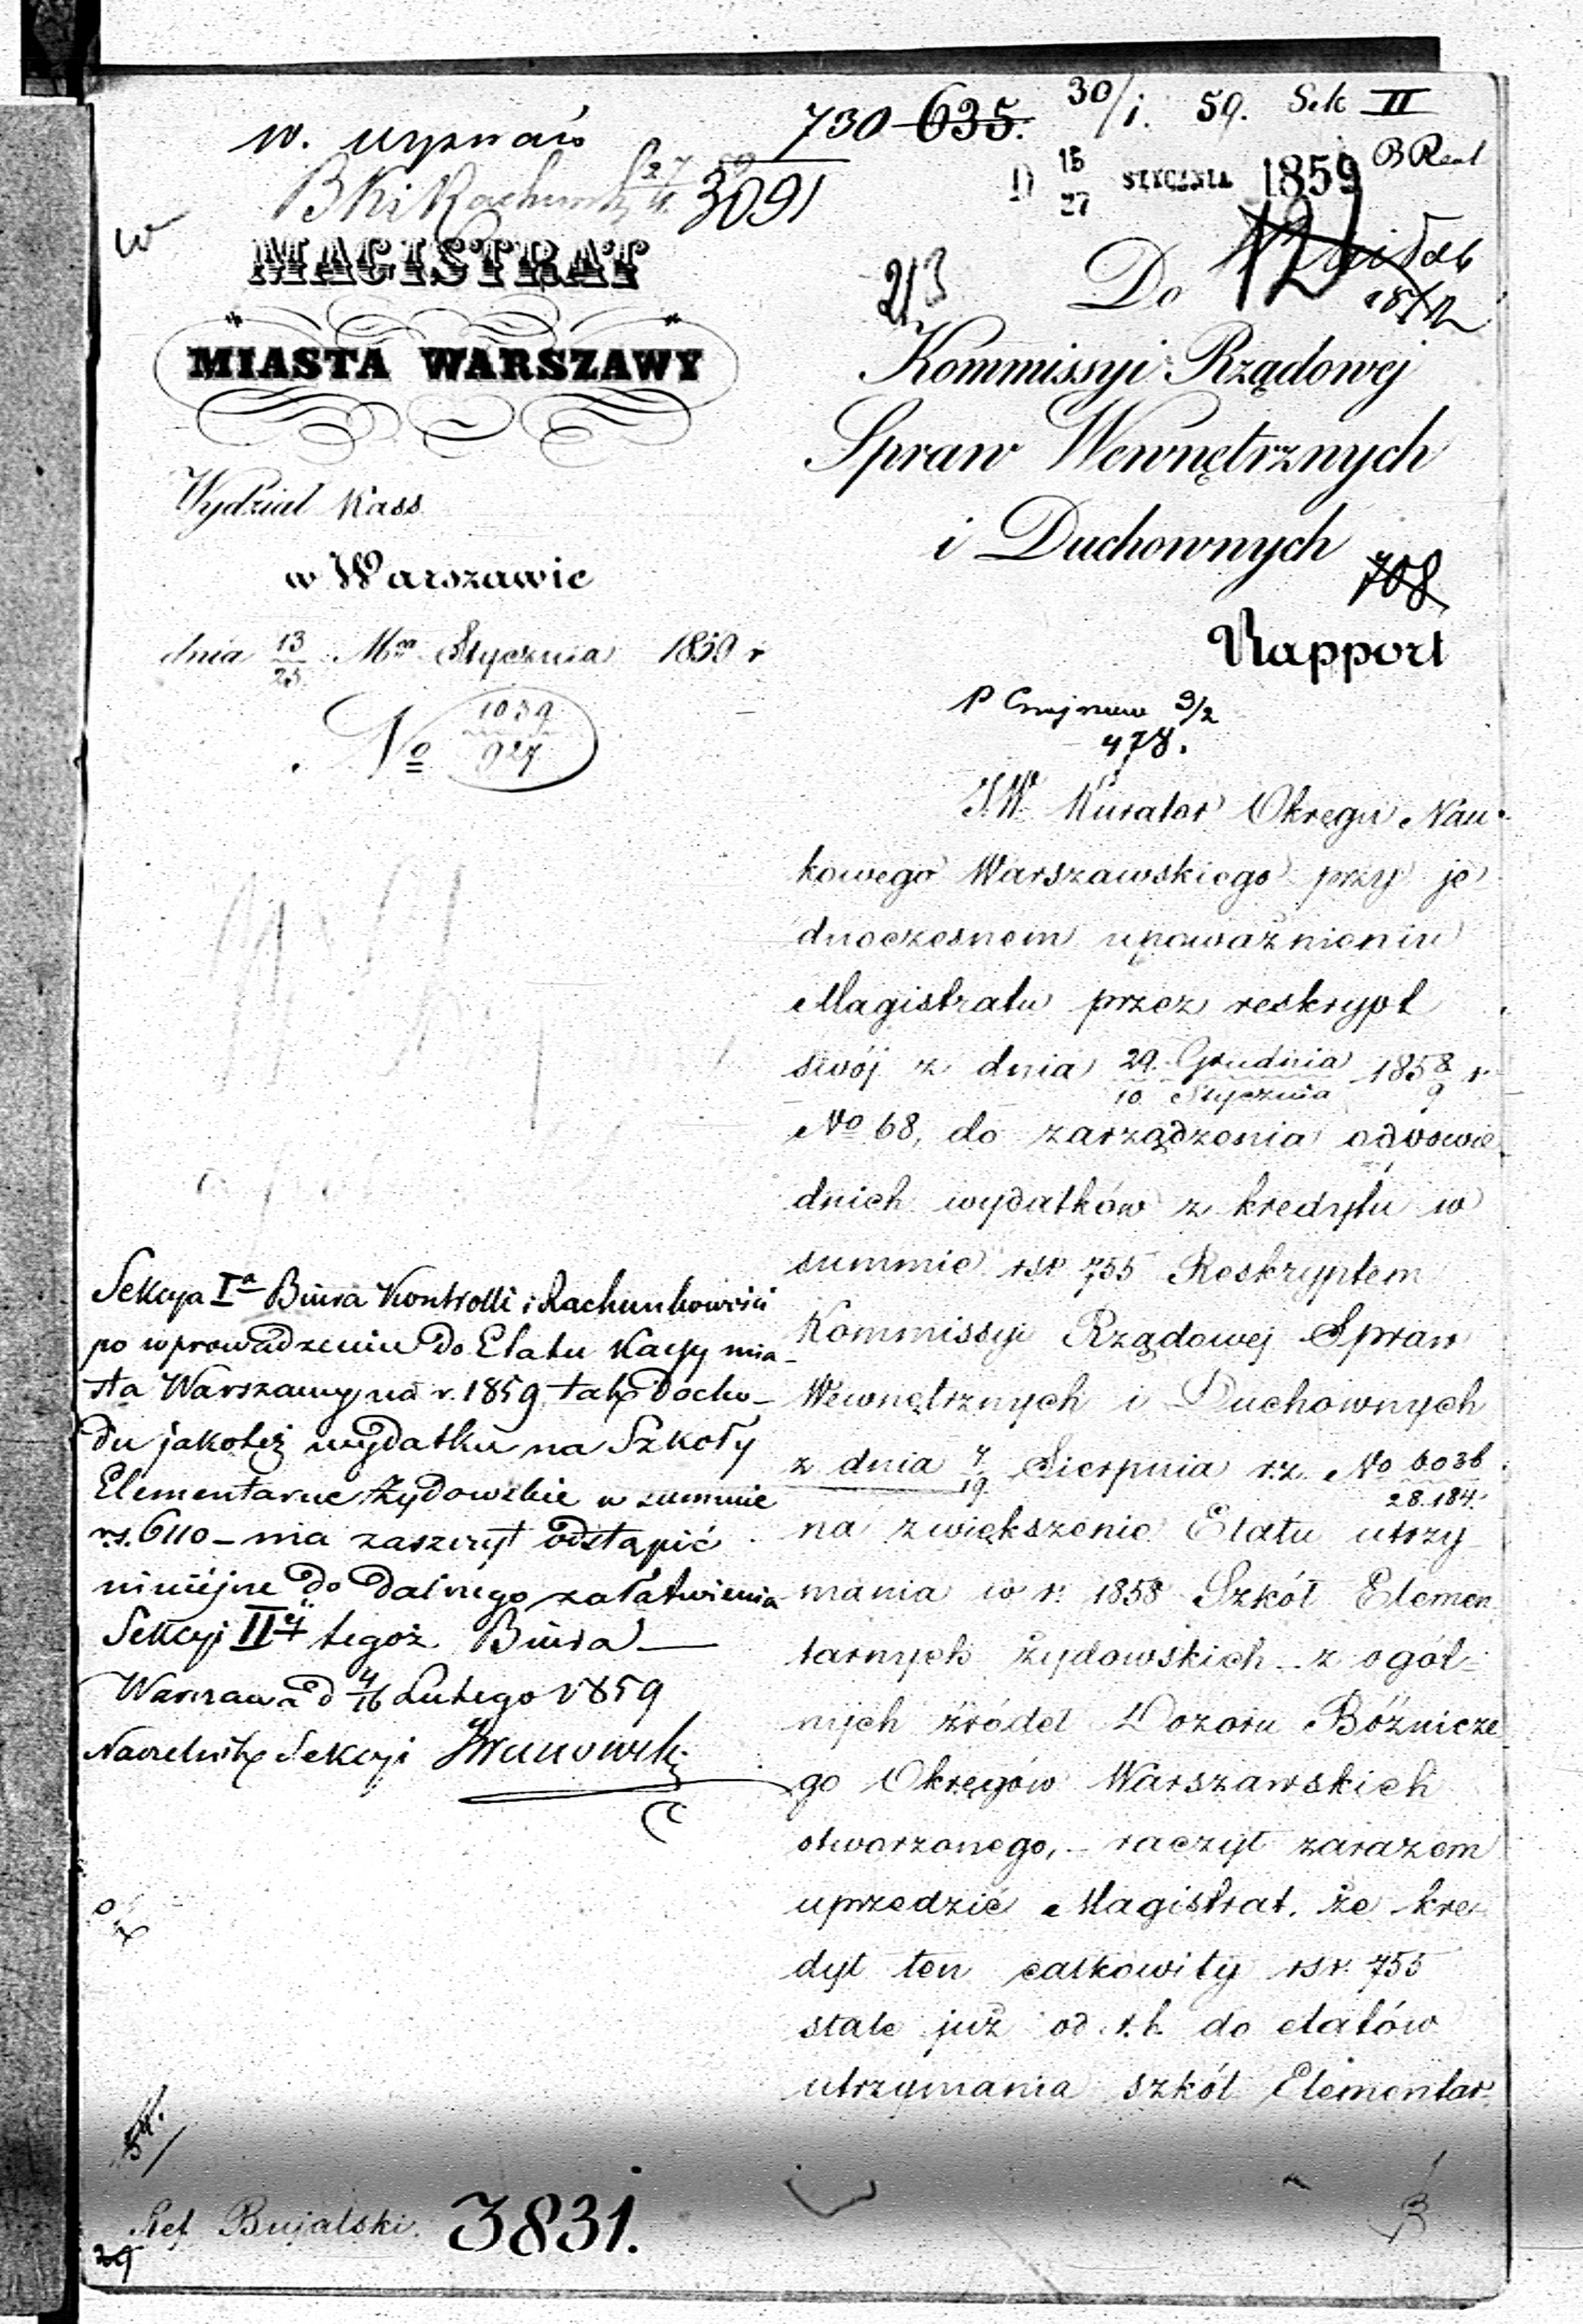 w.
730 635. 30/1. 59. Sek II
3091
D 15/27 STYCZNIA 1859
w
213
MAGISTRAT
MIASTA WARSZAWY
Wydział Kass
w Warszawie
dnia 13/25 Mca Stycznia 1859 r
No 1039/927
Do
Kommissyi Rządowej
Spraw Wewnętrznych
i Duchownych
708
Rapport
P 9/2
478.
J.W. Kurator Okręgu Nau-
kowego Warszawskiego przy je
dnoczesnem upoważnieniu
Magistratu przez reskrypt
swój z dnia 29. Grudnia/10 Stycznia 1858/9 r
No 68, do zarządzenia odpowie
dnich wydatków z kredytu w
summie rsr 755 Reskryptem
Kommissyi Rządowej Spraw
Wewnętrznych i Duchownych
z dnia 7/19 Sierpnia r.z. No 6036/28.184.
na zwiększenie Etatu utrzy
mania w r. 1858 Szkół Elemen
tarnych żydowskich z ogól-
nych źródeł Dozoru Bóżnicze
go Okręgów Warszawskich
otworzonego, – raczył zarazem
uprzedzić Magistrat, że kre-
dyt ten całkowity rsr. 755
stale już od r.b. do etatów
utrzymania szkół Elementar.
Sekcya Ia Biura Kontrolli i Rachunkowości
po wprowadzeniu do Etatu Kassy mia-
sta Warszawy na r. 1859 tak docho-
du jakoteż wydatku na Szkoły
Elementarne Żydowskie w summie
rs. 6110 – ma zaszczyt odstąpić
niniejsze do dalszego załatwienia
Sekcyi IIej tegoż Biura —
Warszawa d 4/16 Lutego 1859
Naczelnik Sekcyi
Ref Bujalski. 3831.
29